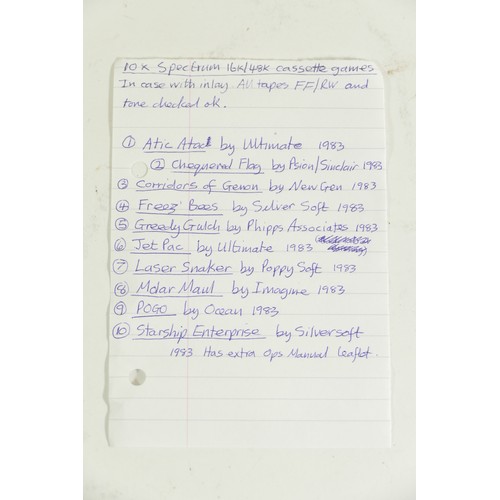 10x Spectrum 16k/48k cassette games
In case with inlay All tapes FF/RW and
tone checked ok.
① Atic Atac by Ultimate 1983
② Chequered Flag by Psion/Sinclair 1983
③ Corridors of Genon by New Gen 1983
④ Freez Bees by Silver Soft 1983
⑤ Greedy Gulch by Phipps Associates 1983
⑥ Jet Pac by Ultimate 1983
⑦ Laser Snaker by Poppy Soft 1983
⑧ Molar Maul by Imagine 1983
⑨ POGO by Ocean 1983
⑩ Starship Enterprise by Silversoft
1983 Has extra Ops Manual Leaflet.